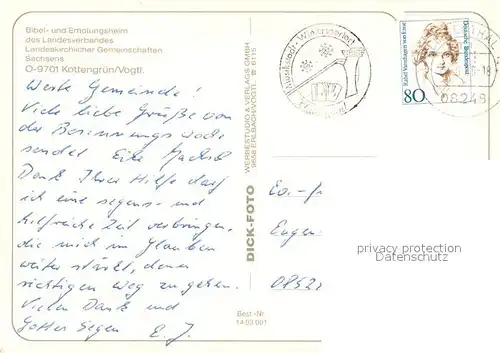 Bibel- und Erholungsheim
des Landesverbandes
Landeskirchlicher Gemeinschaften
Sachsens
O-9701 Kottengrün/Vogtl.
Werte Gemeinde!
Viele liebe Grüße von
der Besinnungswoche
sendet
Dank Ihrer Hilfe darf
ich eine segens- und
hilfreiche Zeit verbringen,
die mich im Glauben
weiter stärkt, den
richtigen Weg zu gehen.
Vielen Dank und
Gottes Segen E. J.
WERBESTUDIO & VERLAGS GMBH
9658 ERLBACH/VOGTL. ☎ 6115
DICK-FOTO
Best.-Nr.
14 03 001
Musikstadt · Wintersportort
Deutsche Bundespost
Rahel Varnhagen von Ense
80
-18
08248
Ev.-
Eugen-
privacy protection
Datenschutz